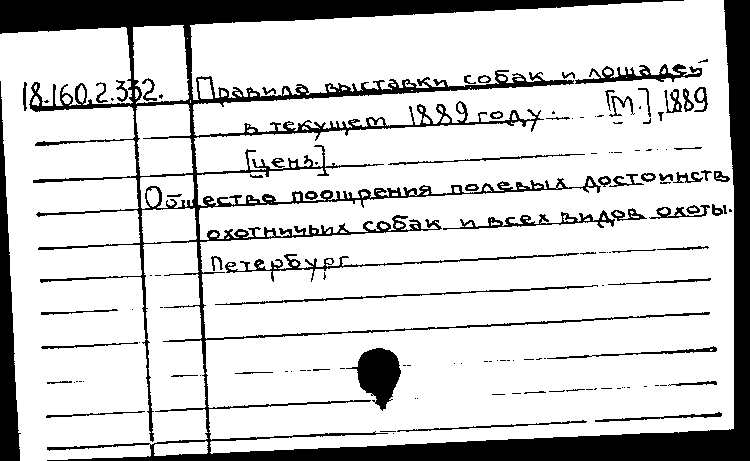 18.160.2.332. Правила выставки собак и лошадей
в текущем 1889 году. [М.], 1889
[ценз.].
Общество поощрения полевых достоинств
охотничьих собак и всех видов охоты.
Петербург